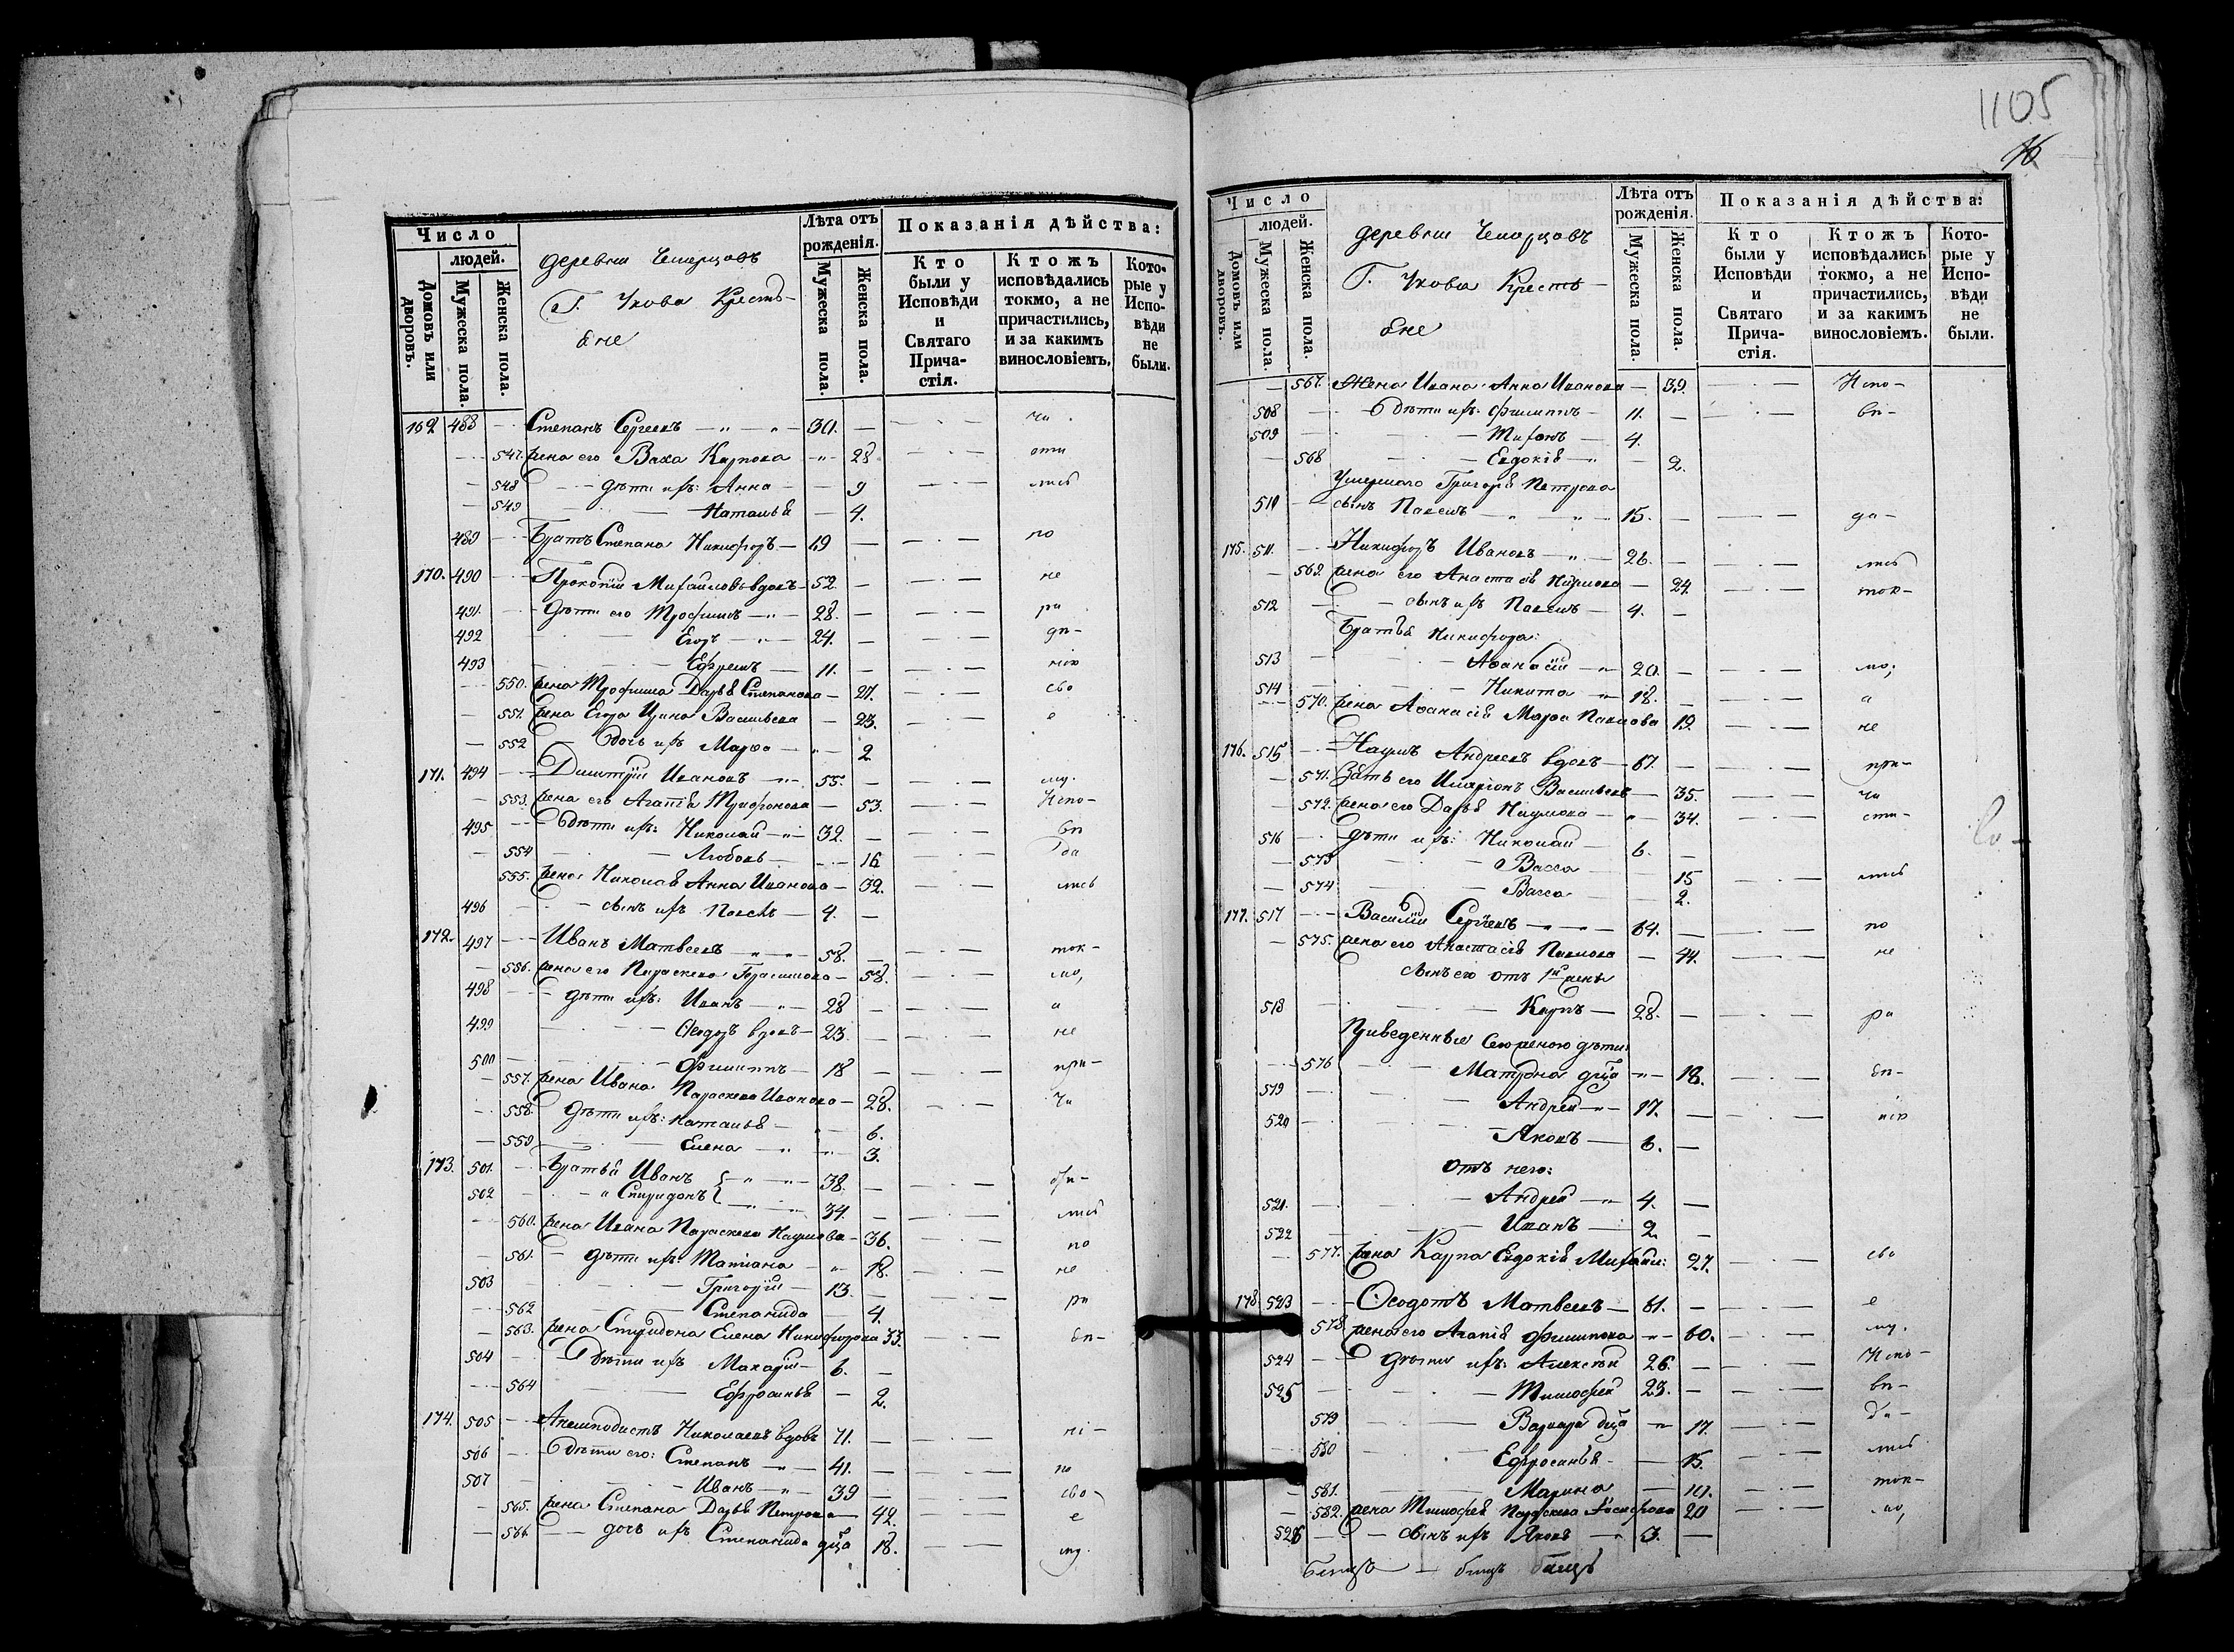 1105
16
Число
людей.
Домовъ или дворовъ.
Мужеска пола.
Женска пола.
деревни
Г. Укова Кресть-
яне
Лѣта отъ рожденія.
Мужеска пола.
Женска пола.
Показанія дѣйства:
Кто были у Исповѣди и Святаго Прича-стія.
Ктожъ исповѣдались токмо, а не причастились, и за какимъ винословіемъ.
Кото-рые у Испо-вѣди не были.
488 Степанъ Сергеевъ 30. чи
547. жена его Васа Карпова 28 сти
548 дѣти ихъ: Анна 9 лись
549 Наталья 4.
489 Братъ Степана Никифоръ 19 по
170. 490 Прокопій Михайловъ вдовъ 52. не
491. дѣти его Трофимъ 28. ра
492 Егоръ 24. дѣ-
493 Ефремъ 11. нію
550. жена Трофима Дарья Степанова 27. сво
551. жена Егора Ирина Васильева 23. е
552 дочь ихъ Марѳа 2
171. 494 Димитрій Ивановъ 55. му.
553. жена его Агапія Трифонова 53. Испо-
495 дѣти ихъ: Николай 32. вѣ
554 Любовь 16 да
555. жена Николая Анна Иванова 32. лись
496 сынъ ихъ Павелъ 4.
172. 497 Иванъ Матвеевъ 58. ток-
556. жена его Параскева Герасимова 58. мо,
498 дѣти ихъ: Иванъ 28 а
499 Ѳеодоръ вдовъ 23. не
500 Филиппъ 18 при-
557. жена Ивана Параскева Иванова 28. ча
558. дѣти ихъ: Наталья 6.
559 Елена 3.
173. 501. Братья Иванъ 38.
502 Спиридонъ 34. лись
560. жена Ивана Параскева Наумова 36. по
561. дѣти ихъ: Татіана 18. не
503 Григорій 13. ра
562 Степанида 4.
563. жена Спиридона Елена Никифорова 33. дѣ-
504 дѣти ихъ Макарій 6.
564 Ефросинья 2.
174. 505 Анемподистъ Николаевъ вдовъ 71. ні-
506 дѣти его: Степанъ 41. ю
507 Иванъ 39 сво-
565. жена Степана Дарья Петрова 42. е
566 дочь ихъ Степанида дѣца 18. му.
Число
людей.
Домовъ или дворовъ.
Мужеска пола.
Женска пола.
деревни
Г. Укова Кресть-
яне
Лѣта отъ рожденія.
Мужеска пола.
Женска пола.
Показанія дѣйства:
Кто были у Исповѣди и Святаго Прича-стія.
Ктожъ исповѣдались токмо, а не причастились, и за какимъ винословіемъ.
Кото-рые у Испо-вѣди не были.
567. Жена Ивана Анна Иванова 39. Испо-
508 дѣти ихъ: Филиппъ 11. вѣ-
509 Тихонъ 4.
568 Евдокія 2.
Умершаго Григорія Петрова
510 сынъ Павелъ 15. да-
175. 511. Никифоръ Ивановъ 26. лись
569. жена его Анастасія Наумова 24. ток-
512 сынъ ихъ Павелъ 4.
Братья Никифора:
513 Аѳанасій 20. мо,
514 Никита 18. а
570. жена Аѳанасія Марѳа Павлова 19. не
176. 515 Наумъ Андреевъ вдовъ 67. при-
571. Зять его Иларіонъ Васильевъ 35. ча
572. жена его Дарья Наумова 34. сти-
516 дѣти ихъ: Николай 6.
573 Васса 15 лись
574 Васса 2.
177. 517 Василій Сергеевъ 64. по
575. жена его Анастасія Павлова 44. не
сынъ его отъ 1й жены
518 Карпъ 28. ра
Приведенные Сею женою дѣти:
576 Матрона дѣца 18. дѣ-
519 Андрей 17. нію
520 Яковъ 6.
отъ него:
521. Андрей 4.
522 Иванъ 2.
577. жена Карпа Евдокія Михайл: 27. сво
178 523 Ѳеодотъ Матвеевъ 61. е
578 жена его Агапія Филипова 60. му.
524 дѣти ихъ: Алексѣй 26. Испо-
525 Тимофей 23. вѣ-
579 Варвара дѣца 17. да-
580 Ефросинья 15. лись
581. Марина ток-
582. жена Тимофея Параскева 20 мо,
526 сынъ ихъ Яковъ 3.